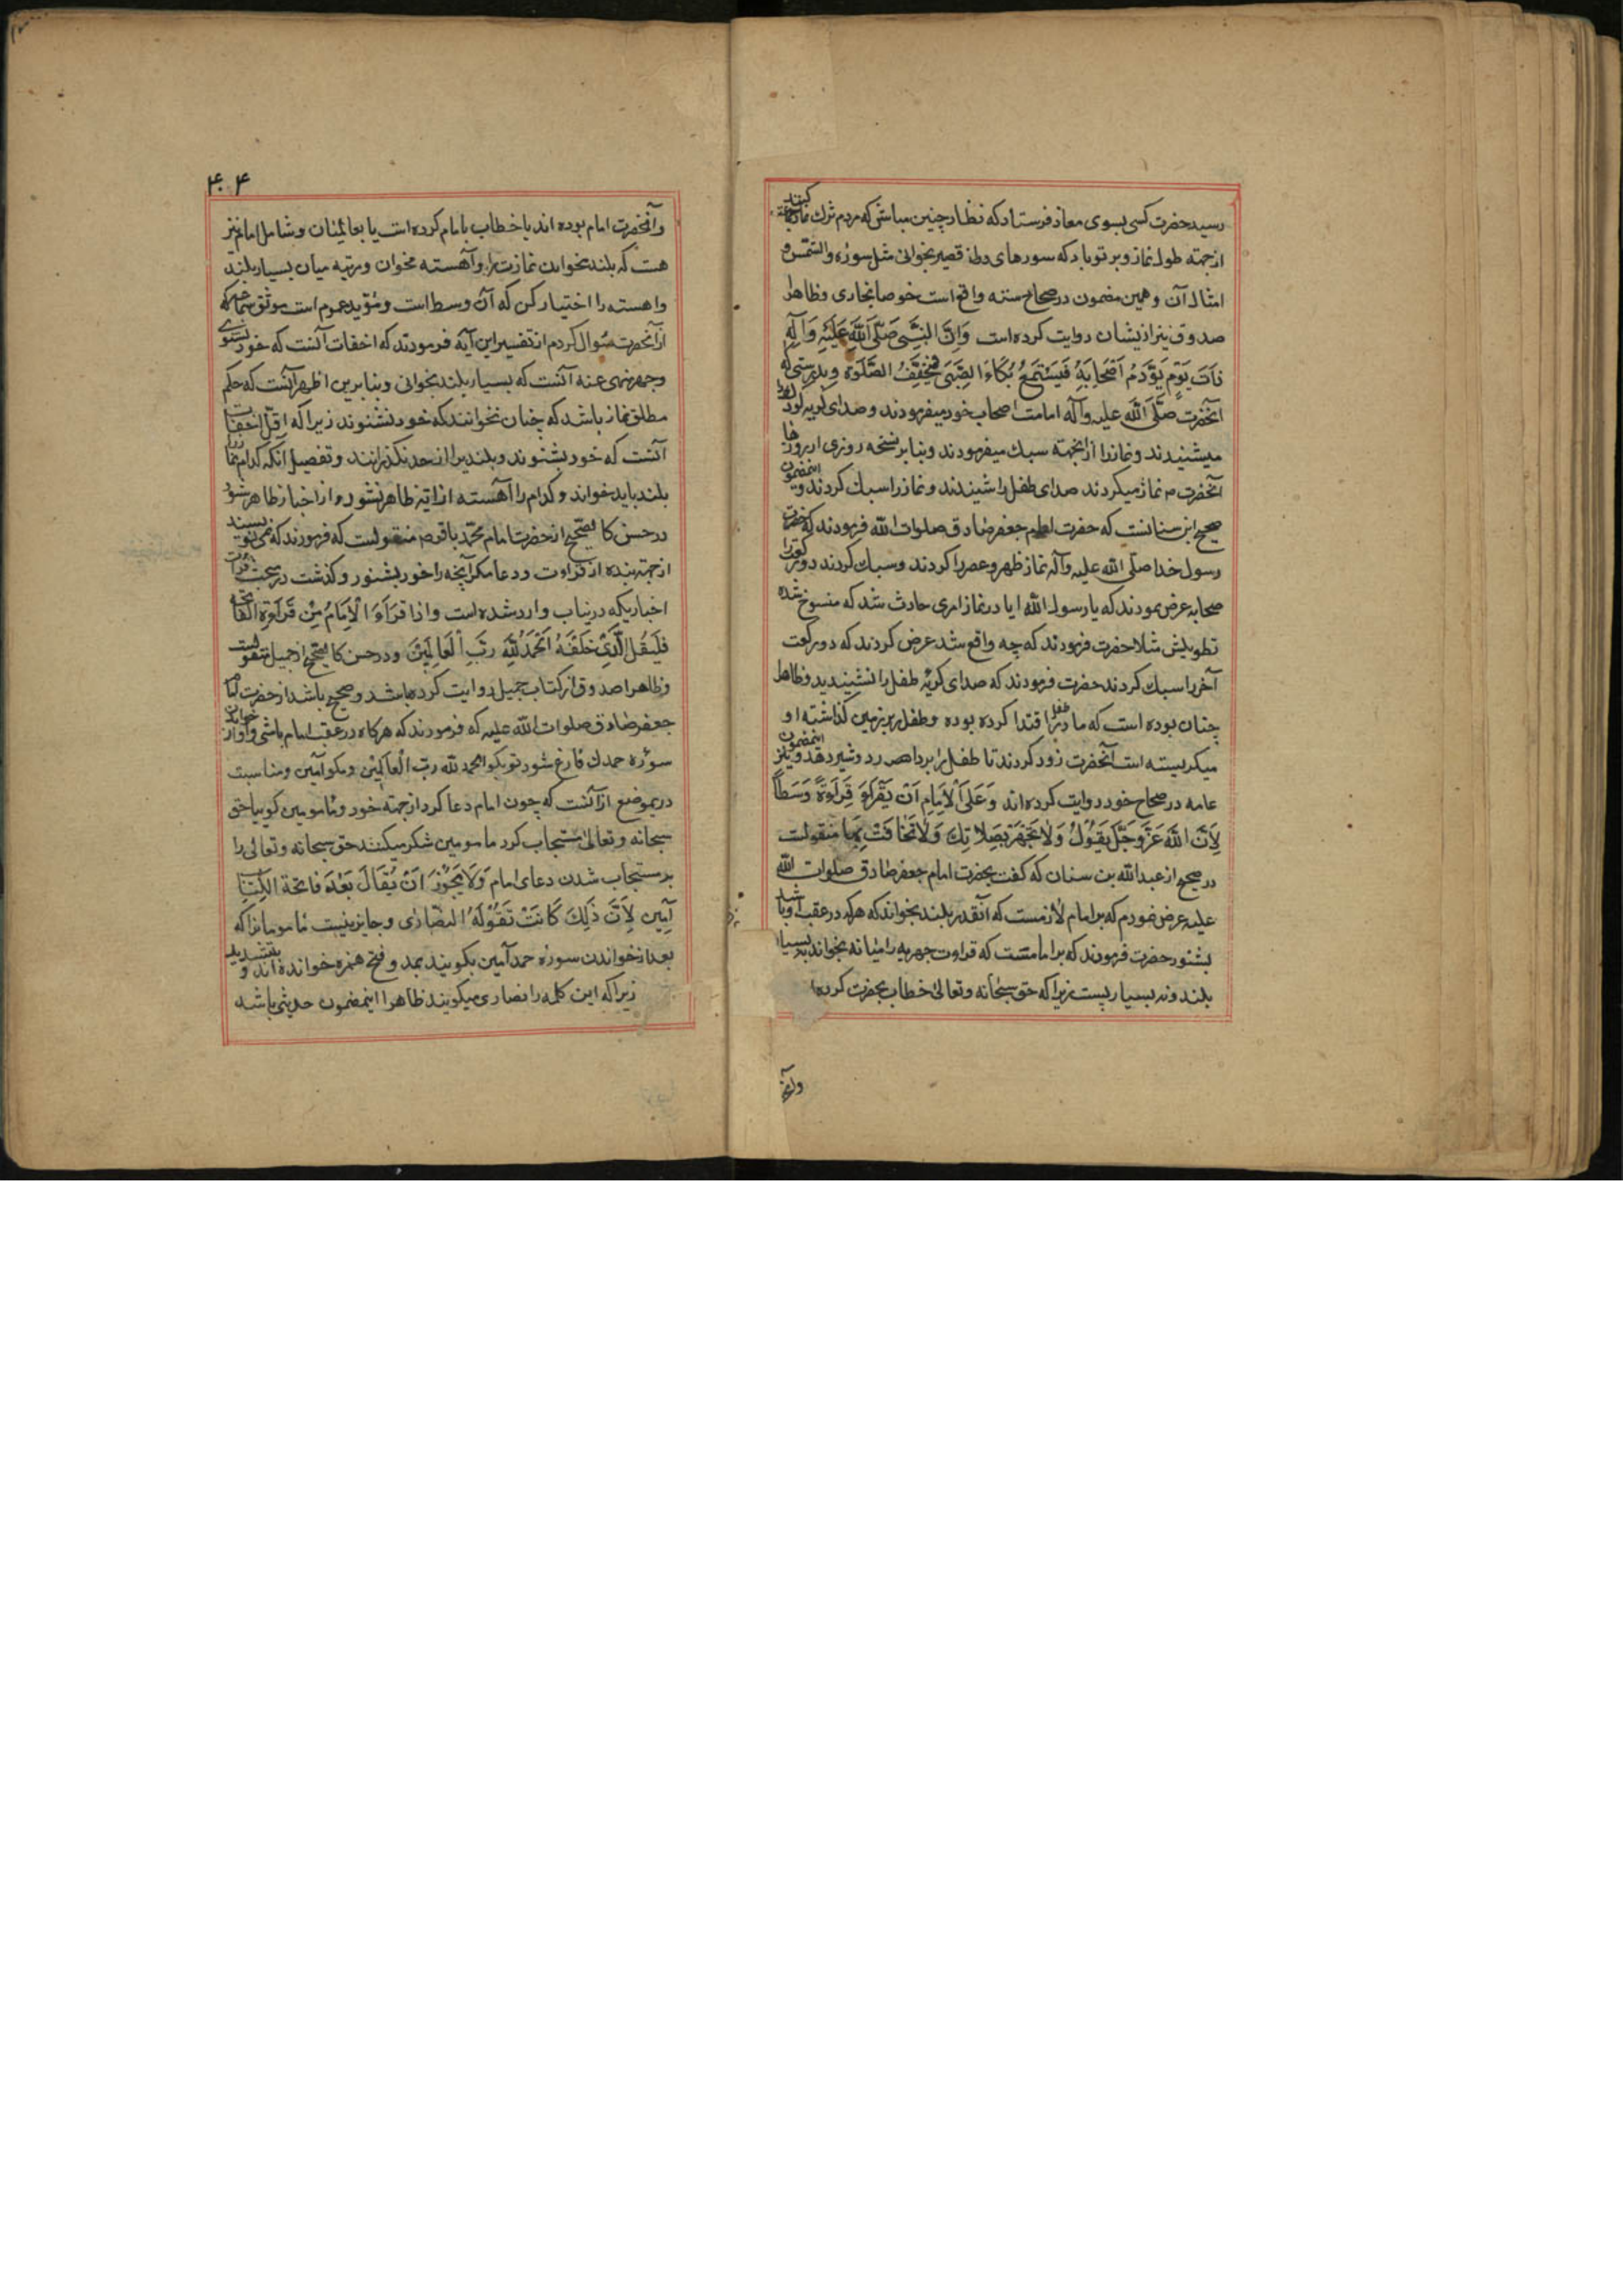 رسید حضرت کسی بسوی معاذ فرستاد که نظار چنین مباش که مردم ترك نماز جماعة کنند
از جهته طول نماز و بر تو باد که سورهای قصیر بخوانی مثل سوره والشمس و
امثال آن و همین مضمون در صحاح سته واقع است خصوصا بخاری و ظاهرا
صدوق نیز ازیشان روایت کرده است وَاِنَّ النَّبِیَّ صَلَّی اللَّهُ عَلَیْهِ وَآلِهِ
ذاتَ یَوْمٍ یَؤُمُّ اَصْحابَهُ فَیَسْتَمِعُ بُکاءَ الصَّبِیِّ فَیُخَفِّفُ الصَّلوة و بدرستی که
آنحضرت صلَّی الله علیه وآله امامت اصحاب خود میفرمودند و صدای کریه کودك
میشنیدند و نماز را ازینجهته سبك میفرمودند و بنا بر نسخه روزی از روزها
آنحضرت م نماز میکردند صدای طفل را شنیدند و نماز را سبك کردند و اینمضمون
صحیح ابن سنانست که حضرت امام جعفر صادق صلوات الله فرمودند که حضرت
رسول خدا صلّی الله علیه وآله نماز ظهر و عصر را کردند و سبك کردند دو رکعت را
صحابه عرض نمودند که یا رسول الله ایا در نماز امری حادث شد که منسوخ شده
تطویلش مثلا حضرت فرمودند که چه واقع شد عرض کردند که دو رکعت
آخر را سبك کردند حضرت فرمودند که صدای کریه طفل را نشنیدید و ظاهرا
چنان بوده است که مادر طفل اقتدا کرده بوده و طفل بر زمین کذاشته او
میکریسته است آنحضرت زود کردند تا طفل را بردارد و شیر دهد و نیز اینمضمون
عامه در صحاح خود روایت کرده‌اند وَعَلَی الْاِمامِ اَنْ یَقْرَاَ قِرٰاءَةً وَسَطاً
لِاَنَّ اللّهَ عَزَّوَجَلَّ یَقُوْلُ وَلا تَجْهَرْ بِصَلاتِكَ وَلا تُخافِتْ بِها منقولست
در صحیح از عبدالله بن سنان که کفت بحضرت امام جعفر صادق صلوات الله
علیه عرض نمودم که بر امام لازمست که آنقدر بلند بخواند که هر که در عقب او باشد
بشنود حضرت فرمودند که بر امامست که قراءت جهریه را میانه بخواند نه بسیار
بلند و نه بسیار پست زیرا که حق سبحانه وتعالی خطاب بحضرت کرده
وآنح
۴۰۴
وآنحضرت امام بوده اند یا خطاب بامام کرده است یا بعالمیان و شامل امام نیز
هست که بلند مخوان نمازت را و آهسته مخوان و مرتبه میان بسیار بلند
و اهسته را اختیار کن که آن وسط است و مؤید عموم است موثق سماعه که
از آنحضرت سؤال کردم از تفسیر این آیه فرمودند که اخفات آنست که خود نشنوی
و جهر منهی عنه آنست که بسیار بلند بخوانی و بنا برین اظهر آنست که حکم
مطلق نماز باشد که چنان نخوانند که خود نشنوند زیرا که اقلّ اخفات
آنست که خود بشنوند و بلند را از حد نکذرانند و تفصیل آنکه کدام نماز را
بلند باید خواند و کدام را آهسته از آیه ظاهر نشود و از اخبار ظاهر شود
در حسن کالصّحیح از حضرت امام محمّد باقر ص منقولست که فرمودند که نمی نویسند
از جهته بنده از قراءت و دعا مکر آنچه را خود بشنود و کذشت در مبحث قرائت
اخباریکه درینباب وارد شده است واذا قَرَاَءَ الْاِمامُ مِنْ قَرٰاءَةِ الفٰاتحة
فَلْیَقُلِ الَّذِیْ خَلْفَهُ اَلْحَمْدُ لِلّهِ رَبِّ اْلعَالَمِینَ و در حسن کالصحیح از جمیل منقولست
و ظاهرا صدوق از کتاب جمیل روایت کرده باشد و صحیح باشد از حضرت امام
جعفر صادق صلوات الله علیه که فرمودند که هر کاه در عقب امام باشی و او از خواندن
سوره حمد فارغ شود تو بکو الحمد لله ربّ العالمین و مکو آمین و مناسبت
درینموضع از آنست که چون امام دعا کرد از جهته خود و مامومین کوییا حق
سبحانه وتعالی مستجاب کرد مامومین شکر میکنند حق سبحانه وتعالی را
بر مستجاب شدن دعای امام وَلا یَجُوْزُ اَنْ یُقَالَ بَعْدَ فاتحة الکِتٰابِ
آمِین لِاَنَّ ذَلِكَ کَانَتْ تَقُوْلُهُ النصاری و جایز نیست مامومانرا که
بعد از خواندن سوره حمد آمین بکویند بمد و فتح همزه خوانده‌اند و بتشدید
زیرا که این کلمه را نصاری میکویند ظاهرا اینمضمون حدیثی باشد